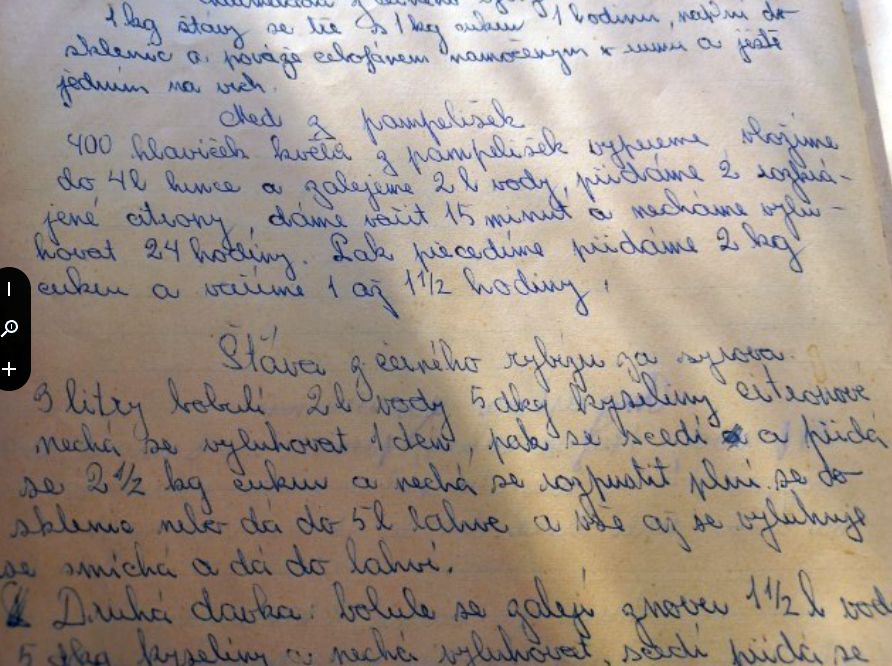 1 kg šťávy se tře s 1 kg cukru 1 hodinu, naplní do
sklenic a pováže celofánem namočeným v rumu a ještě
jedním na vrch.
Med z pampelišek
400 hlaviček květů z pampelišek vypereme, vložíme
do 4 l hrnce a zalejeme 2 l vody, přidáme 2 rozkrá-
jené citrony dáme vařit 15 minut a necháme vylu-
hovat 24 hodiny. Pak precedíme přidáme 2 kg
cukru a vaříme 1 až 1 1/2 hodiny.
Šťáva z černého rybízu za syrova.
3 litry bobulí 2 l vody 5 dkg kyseliny citronové
nechá se vyluhovat 1 den, pak se scedí a přidá
se 2 1/2 kg cukru a nechá se rozpustit plní se do
sklenic nebo dá do 5 l lahve a vše až se vyluhuje
se smíchá a dá do lahví.
Druhá davka: bobule se zalejí znovu 1 1/2 l vod
5 dkg kyseliny a nechá vyluhovat, scedí přidá se